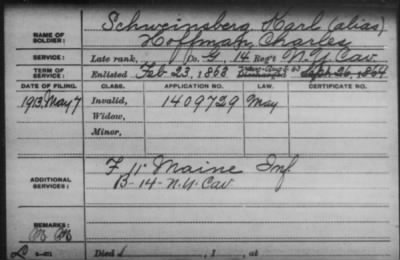 Schweinsberg, Karl (alias)
NAME OF SOLDIER: Hoffman, Charles
SERVICE: Late rank, Co. G, 14 Reg't N.Y. Cav
TERM OF SERVICE: Enlisted Feb. 23, 1863 Sept. 26, 1864
DATE OF FILING. CLASS. APPLICATION NO. LAW. CERTIFICATE NO.
1913 May 7 Invalid, 1409729 May
Widow,
Minor,
ADDITIONAL SERVICES: F 11" Maine Inf.
B-14-N.Y. Cav
REMARKS:
Died , 1 , at